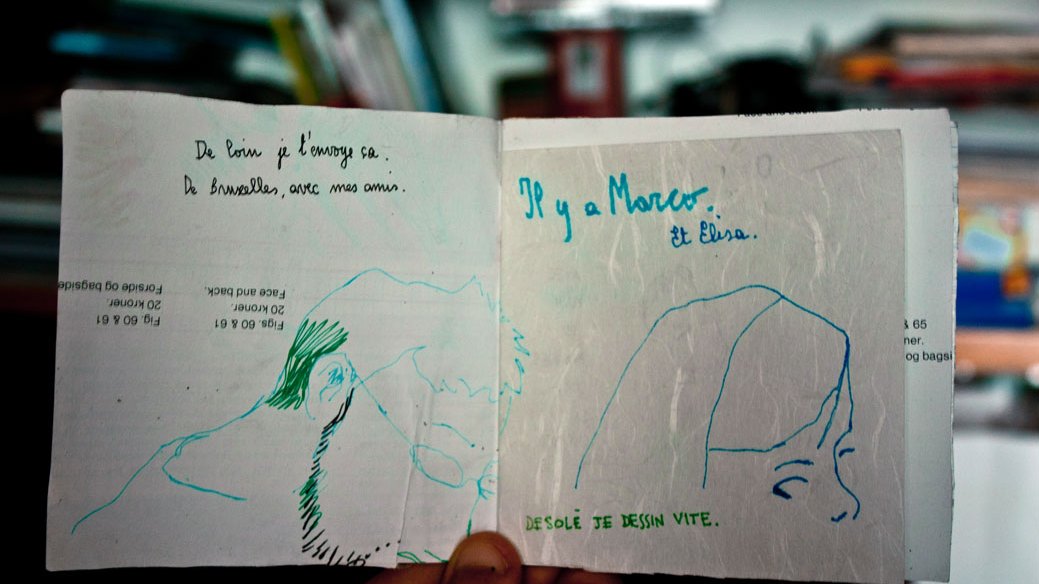 De loin je t'envoye ça.
De Bruxelles, avec mes amis.
Fig. 60 & 61
20 kroner.
Forside og bagside
Figs. 60 & 61
20 kroner.
Face and back.
Il y a Marco.
Et Elisa.
DESOLÉ JE DESSIN VITE.
& 65
ner.
og bagsi